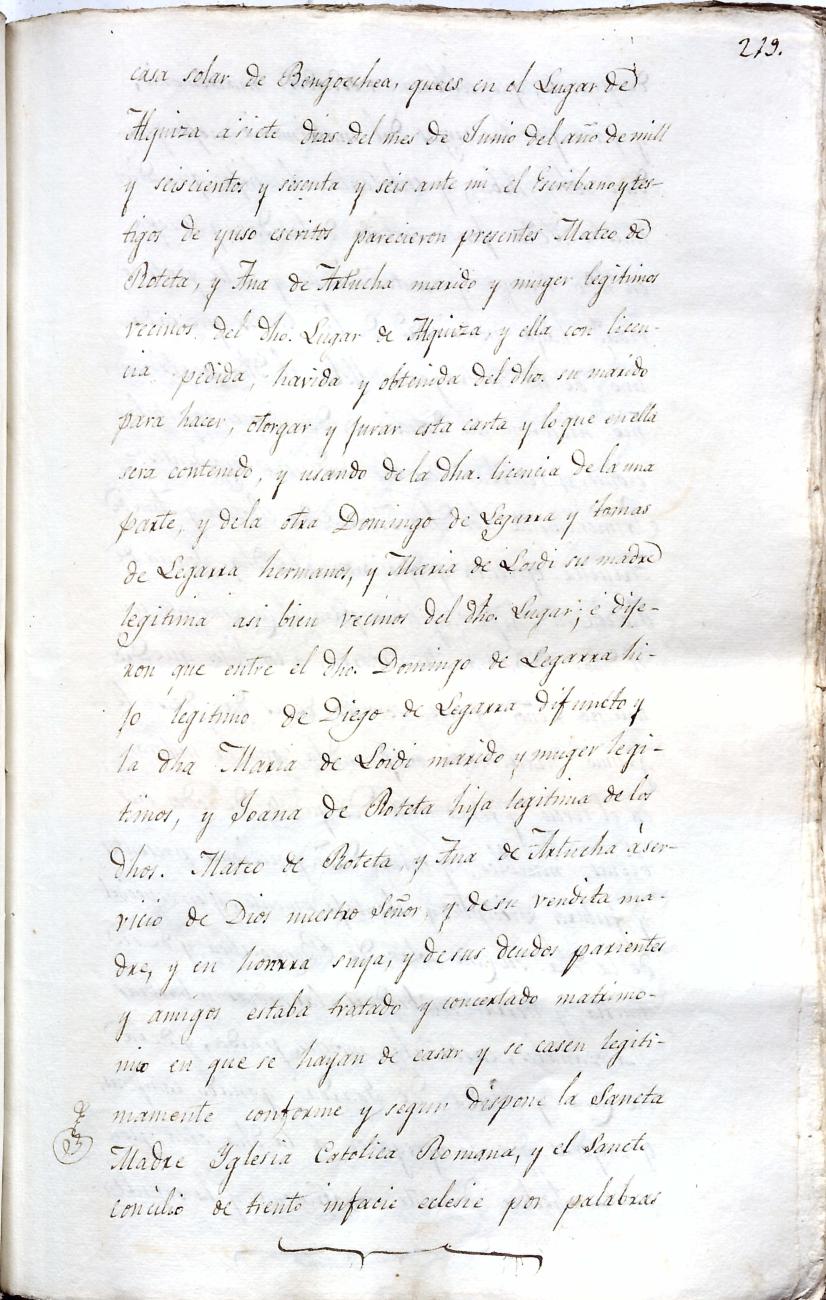 219.
casa solar de Bengoechea, quees en el Lugar de
Alquiza á siete dias del mes de Junio del año de mill
y seiscientos y sesenta y seis ante mi el Escribano y tes-
tigos de yuso escritos parecieron presentes Mateo de
Roteta, y Ana de Artucha marido y muger legitimos
vecinos del dho. Lugar de Alquiza, y ella con licen-
cia pedida, havida y obtenida del dho. su marido
para hacer, otorgar y jurar esta carta y lo que en ella
será contenido, y usando de la dha. licencia de la una
parte, y dela otra Domingo de Legarra y Tomas
de Legarra hermanos, y Maria de Loidi su madre
legitima asi bien vecinos del dho. Lugar; é dije-
ron que entre el dho. Domingo de Legarra hi-
jo legitimo de Diego de Legarra difuncto y
la dha Maria de Loidi marido y muger legi-
timos, y Joana de Roteta hija legitima de los
dhos. Mateo de Roteta, y Ana de Artucha á ser-
vicio de Dios nuestro Señor, y de su vendita ma-
dre, y en honrra suya, y de sus deudos parientes
y amigos estaba tratado y concertado matrimo-
nio en que se hayan de casar y se casen legiti-
mamente conforme y segun dispone la Sancta
Madre Iglesia Catolica Romana, y el Sancto
concilio de trento infacie eclesie por palabras